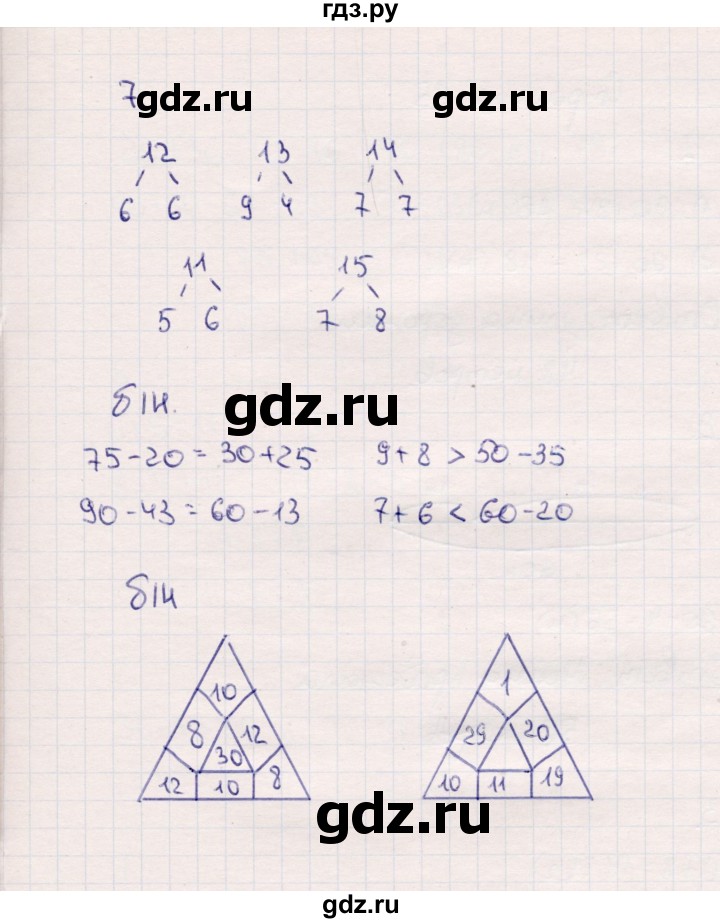 гдз.ру
7
gdz.ru gdz.ru
12 13 14
6 6 9 4 7 7
11 15
5 6 7 8
б/н.
gdz.ru
75-20 = 30+25 9+8 > 50-35
90-43 = 60-13 7+6 < 60-20
б/н
10 1
8 12 29 20
30
12 10 8 10 11 19
gdz.ru
gdz.ru